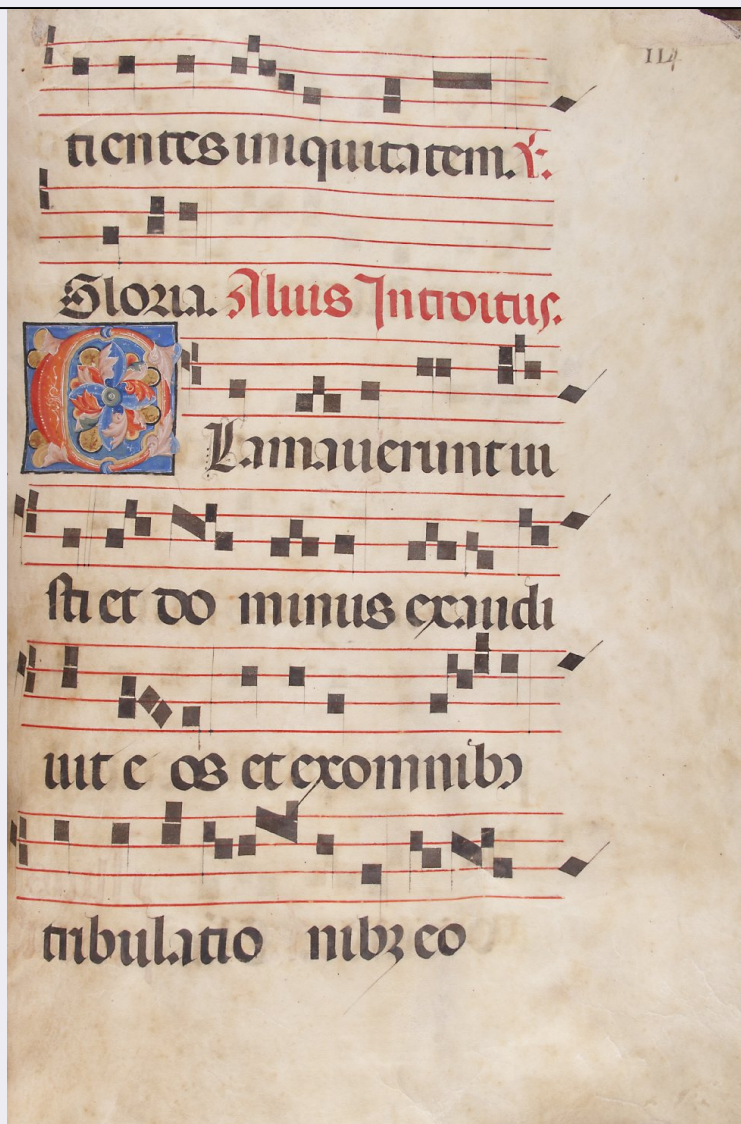 114
tientes iniquitatem. ℣.
Gloria. Alius Introitus.
Clamauerunt iu
sti et do minus exaudi
uit e os et ex omnibꝫ
tribulatio nibꝫ eo